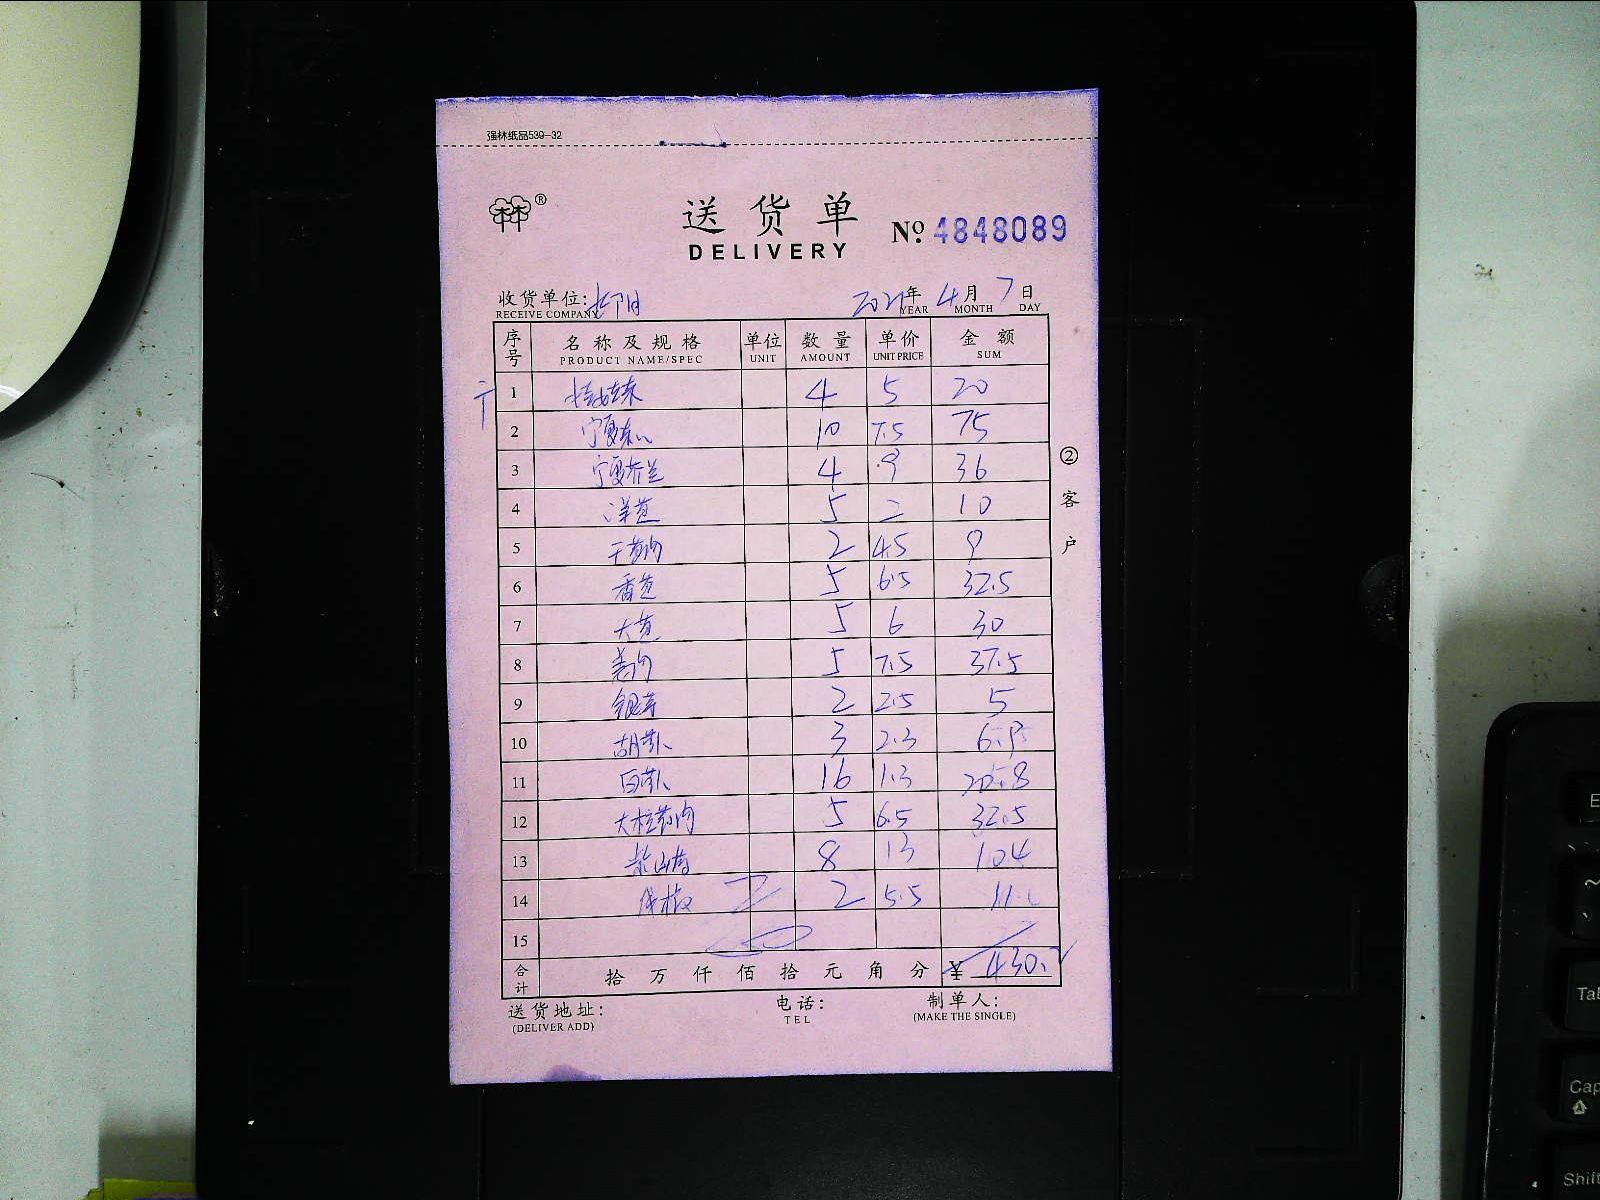 强林纸品539-32
®
送货单
DELIVERY
№ 4848089
收货单位: 2021年 4月 7日
RECEIVE COMPANY YEAR MONTH DAY
序号 名称及规格 单位 数量 单价 金额
PRODUCT NAME/SPEC UNIT AMOUNT UNIT PRICE SUM
1 4 5 20
2 宁夏 10 7.5 75
3 宁夏芥兰 4 9 36
4 洋葱 5 2 10
5 干葱 2 4.5 9
6 香葱 5 6.5 32.5
7 大葱 5 6 30
8 姜 5 7.5 37.5
9 银芽 2 2.5 5
10 胡萝卜 3 2.3 6.9
11 白萝卜 16 1.3 20.8
12 大 5 6.5 32.5
13 8 13 104
14 椒 2 5.5 11
15
合计 拾 万 仟 佰 拾 元 角 分 ¥ 430.2
② 客户
送货地址: 电话: 制单人:
(DELIVER ADD) TEL (MAKE THE SINGLE)